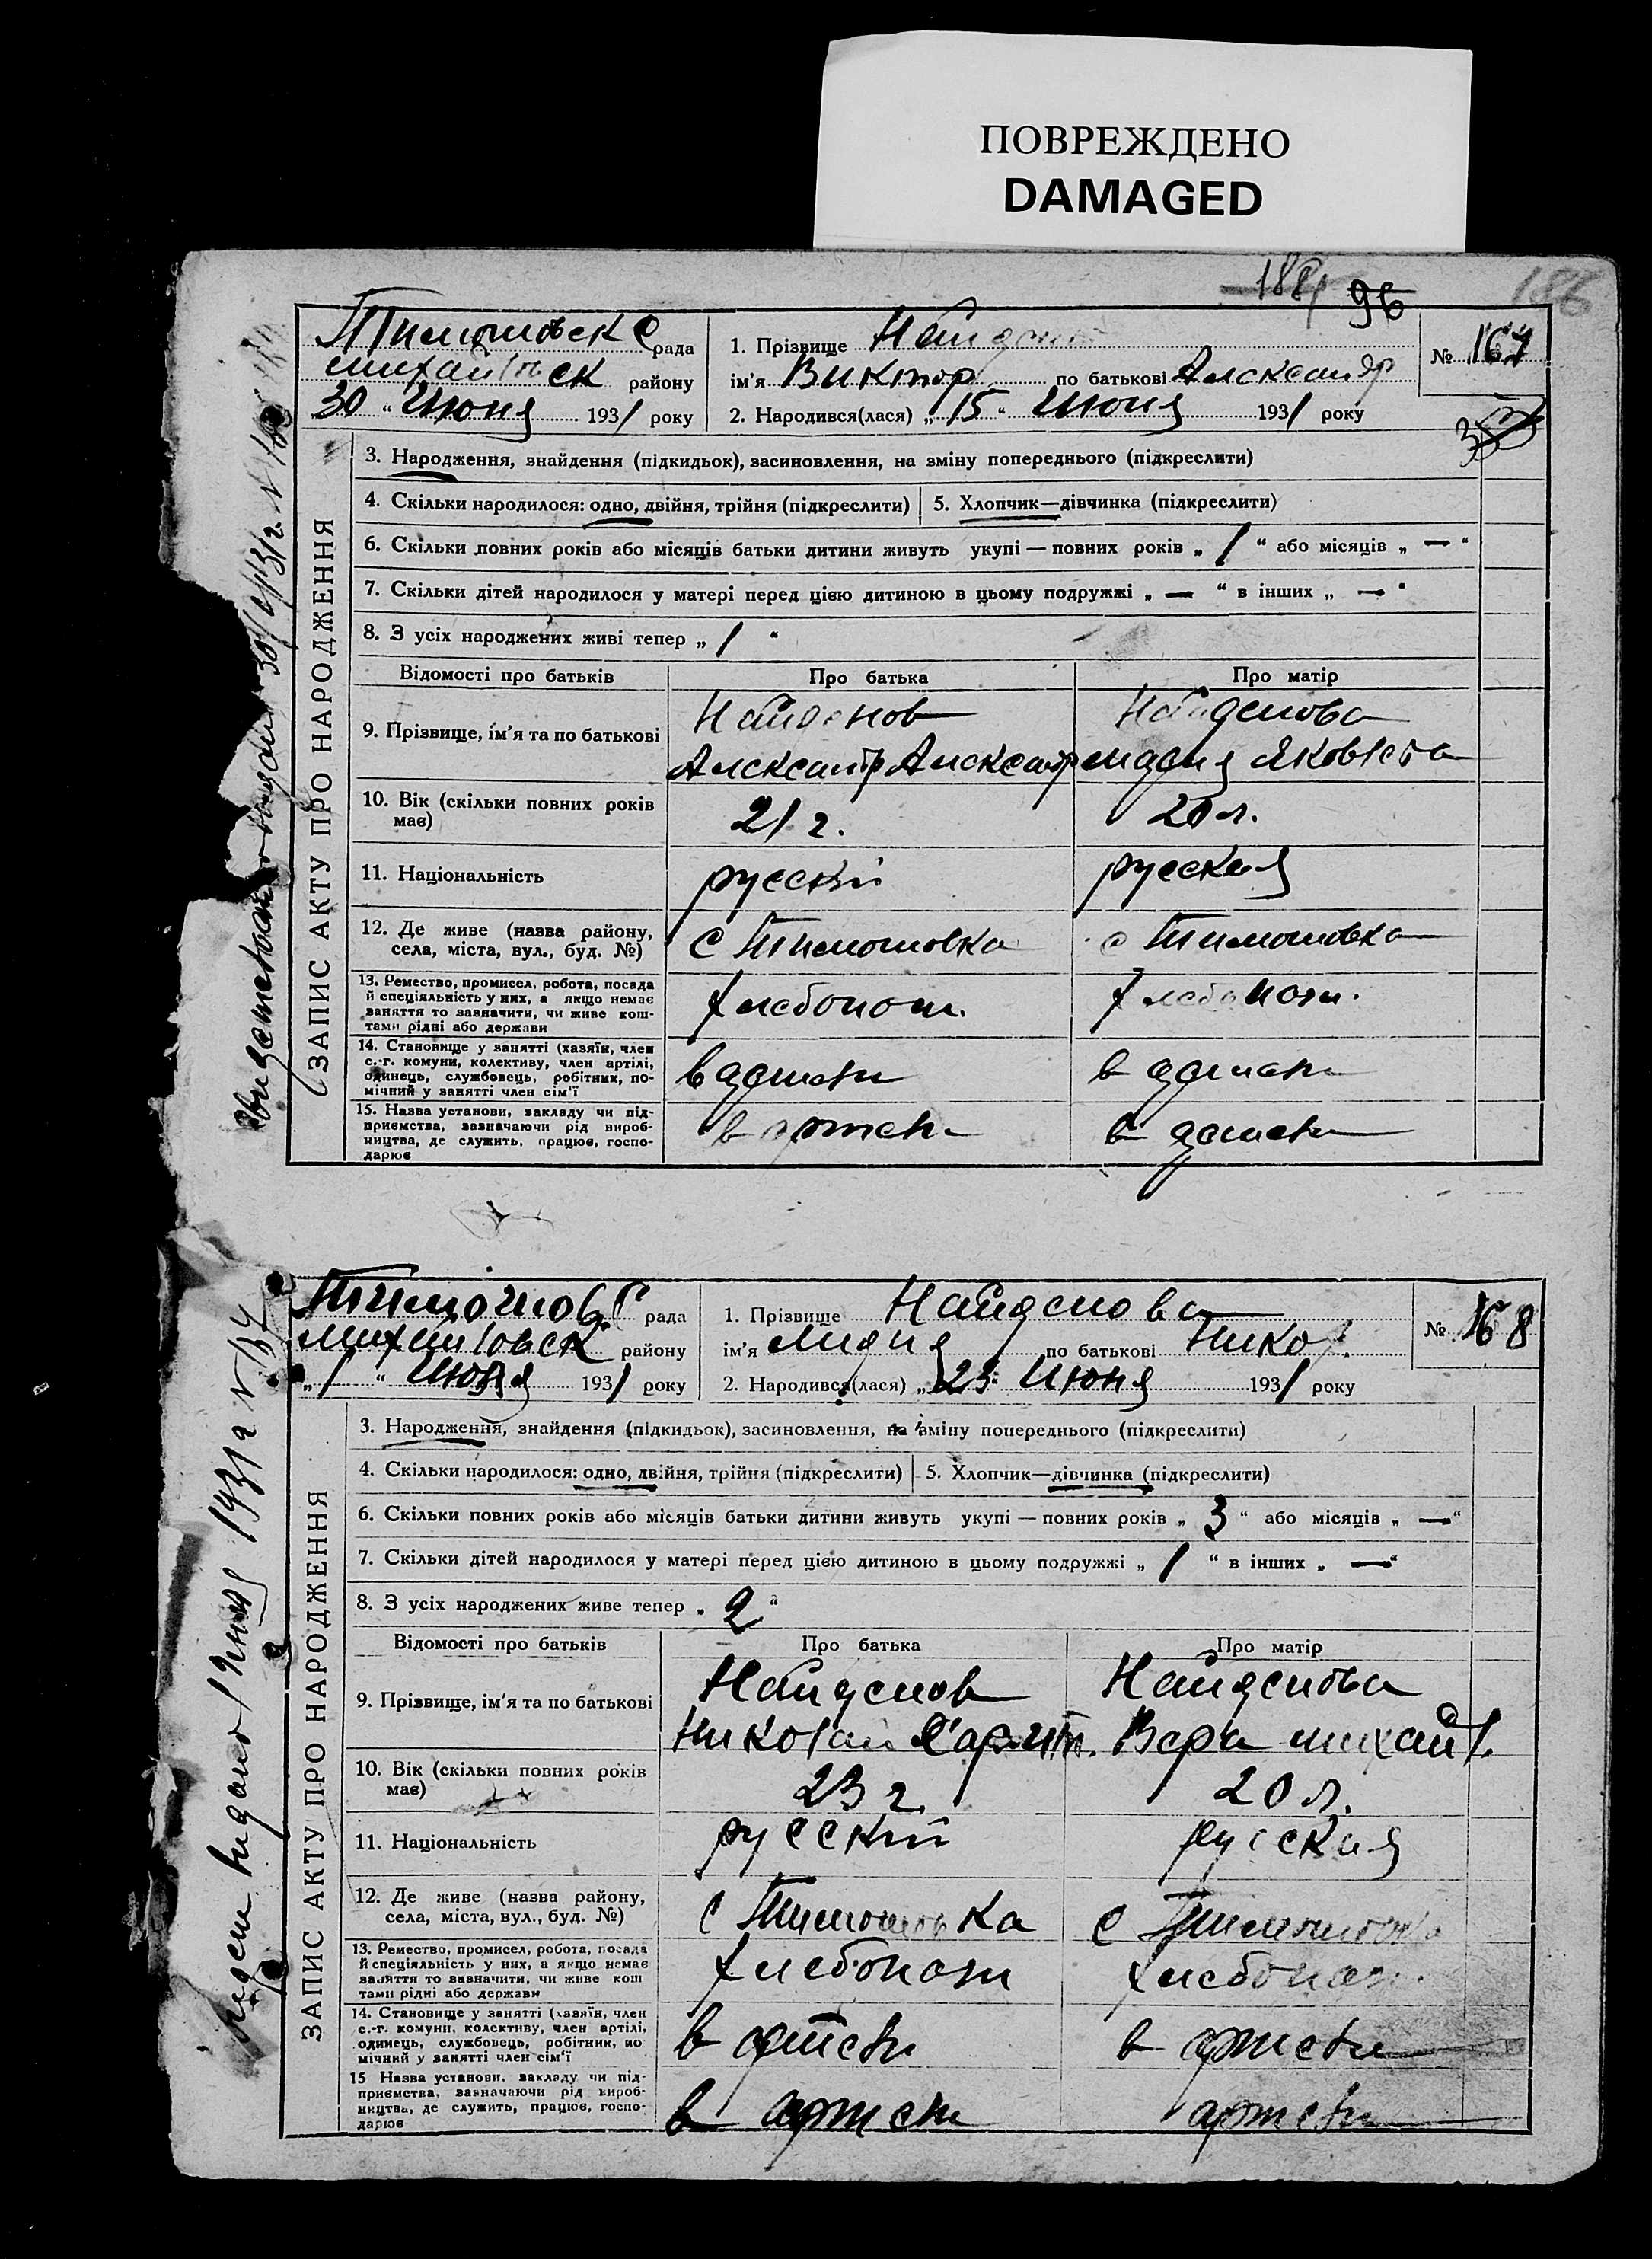 ПОВРЕЖДЕНО
DAMAGED
96
186
рада
района
ЗАПИС АКТУ ПРО НАРОДЖЕННЯ
району
30 " Июня 1931 року
1. Прізвище
ім'я Виктор по батькові Александр
2. Народився(лася) „ 15 " Июня 1931 року
№ 167
3. Народження, знайдення (підкидьок), засиновлення, на зміну попереднього (підкреслити)
4. Скільки народилося: одно, двійня, трійня (підкреслити)
5. Хлопчик—дівчинка (підкреслити)
6. Скільки повних років або місяців батьки дитини живуть укупі — повних років „ 1 " або місяців „ — "
7. Скільки дітей народилося у матері перед цією дитиною в цьому подружжі „ — " в інших „ — "
8. З усіх народжених живі тепер „ 1 "
Відомості про батьків Про батька Про матір
9. Прізвище, ім'я та по батькові
Найденов
Александр Александр
Найденова
Лидия Яковлевна
10. Вік (скільки повних років має) 21 г. 20 л.
11. Національність русский русская
12. Де живе (назва району, села, міста, вул., буд. №) с Тимошовка с Тимошовка
13. Ремество, промисел, робота, посада
й спеціяльність у них, а якщо немає
заняття то зазначити, чи живе кош-
тами рідні або держави
хлебопаш. хлебопаш.
14. Становище у занятті (хазяїн, член
с.-г. комуни, колективу, член артілі,
одинець, службовець, робітник, по-
мічний у занятті член сім'ї
в артели в артели
15. Назва установи, закладу чи під-
приємства, зазначаючи рід вироб-
ництва, де служить, працює, госпо-
дарює
в артели в артели
рада
Михайловск району
„ 1 " Июля 1931 року
1. Прізвище Найденова
ім'я Лидия по батькові Никол.
2. Народився(лася) „ 23 " Июня 1931 року
№ 168
ЗАПИС АКТУ ПРО НАРОДЖЕННЯ
3. Народження, знайдення (підкидьок), засиновлення, на зміну попереднього (підкреслити)
4. Скільки народилося: одно, двійня, трійня (підкреслити)
5. Хлопчик—дівчинка (підкреслити)
6. Скільки повних років або місяців батьки дитини живуть укупі — повних років „ 3 " або місяців „ — "
7. Скільки дітей народилося у матері перед цією дитиною в цьому подружжі „ 1 " в інших „ — "
8. З усіх народжених живе тепер „ 2 "
Відомості про батьків Про батька Про матір
9. Прізвище, ім'я та по батькові
Найденов
Николай Харит.
Найденова
Вера Михайл.
10. Вік (скільки повних років має) 23 г. 20 л.
11. Національність русский русская
12. Де живе (назва району, села, міста, вул., буд. №) с Тимошовка с Тимошовка
13. Ремество, промисел, робота, посада
й спеціяльність у них, а якщо немає
заняття то зазначити, чи живе кош
тами рідні або держави
хлебопаш хлебопаш.
14. Становище у занятті (хазяїн, член
с.-г. комуни, колективу, член артілі,
одинець, службовець, робітник, по
мічний у занятті член сім'ї
в артели в артели
15 Назва установи, закладу чи під-
приємства, зазначаючи рід вироб-
ництва, де служить, працює, госпо-
дарює
в артели артели